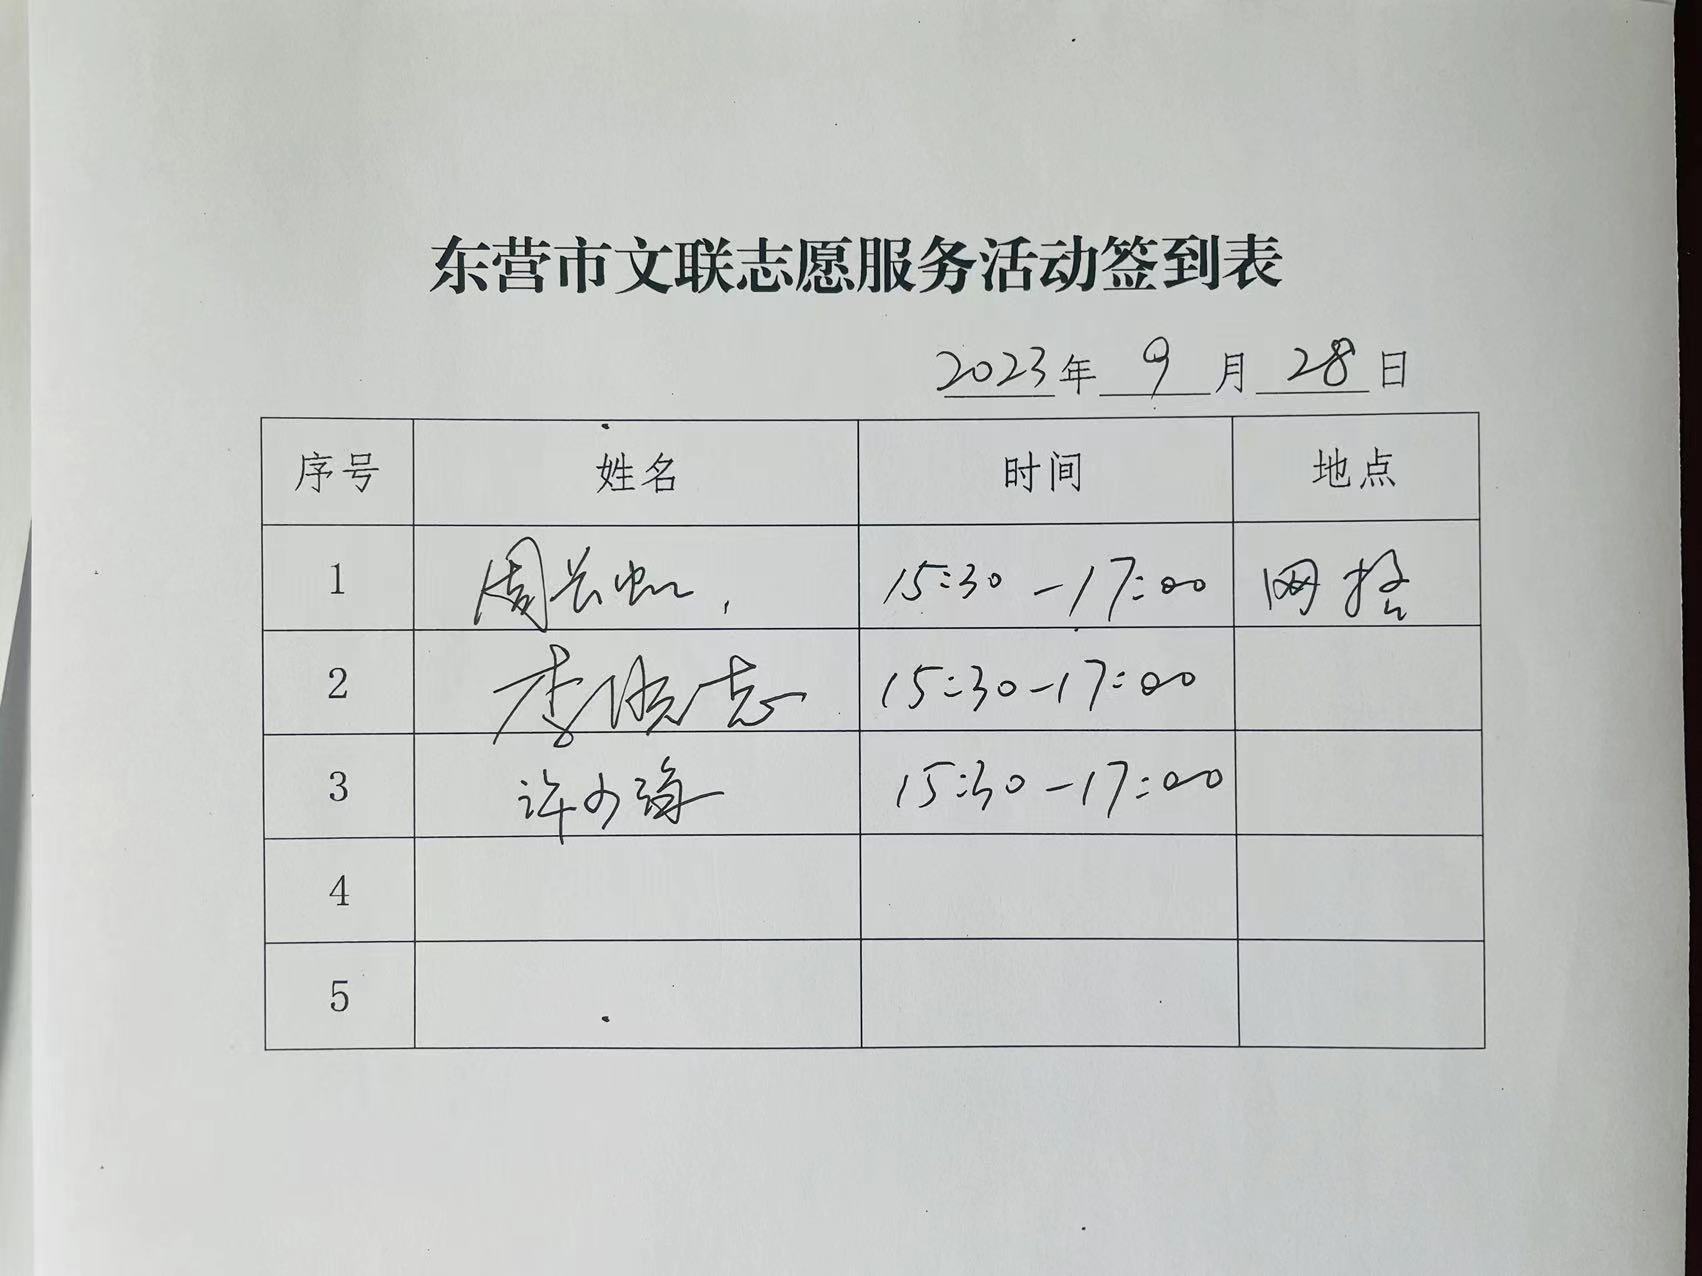 东营市文联志愿服务活动签到表
2023年 9 月 28 日
序号 姓名 时间 地点
1 周长虹 15:30-17:00 网格
2 李 志 15:30-17:00
3 许少海 15:30-17:00
4
5